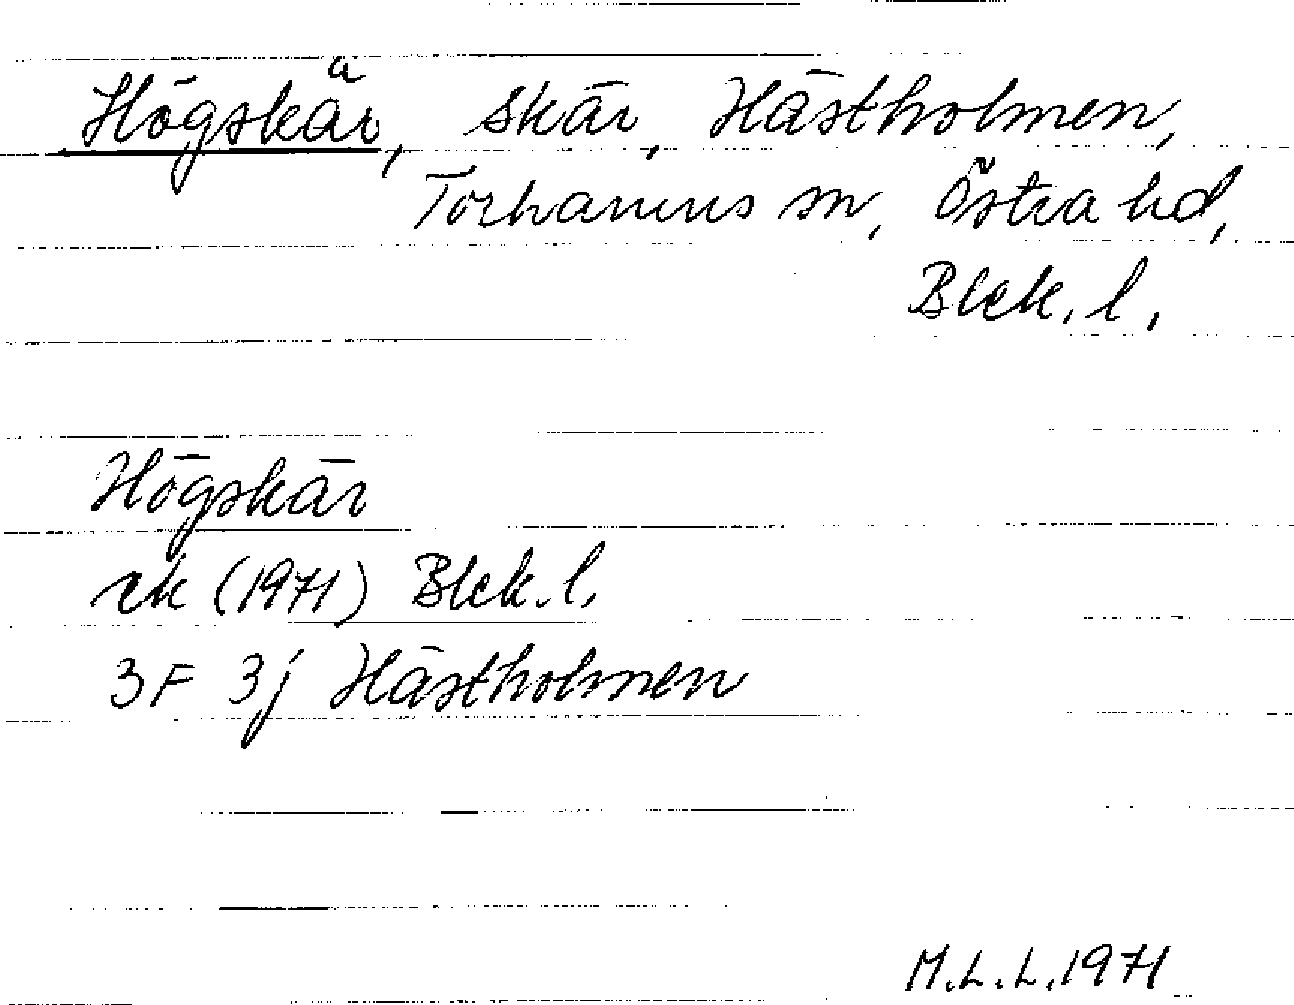 Högskär, skär, Hästholmen,
Torhamns sn, Östra hd,
Blek. l.
Högskär
rek (1971) Blek. l.
3F 3j Hästholmen
M.L.L. 1971